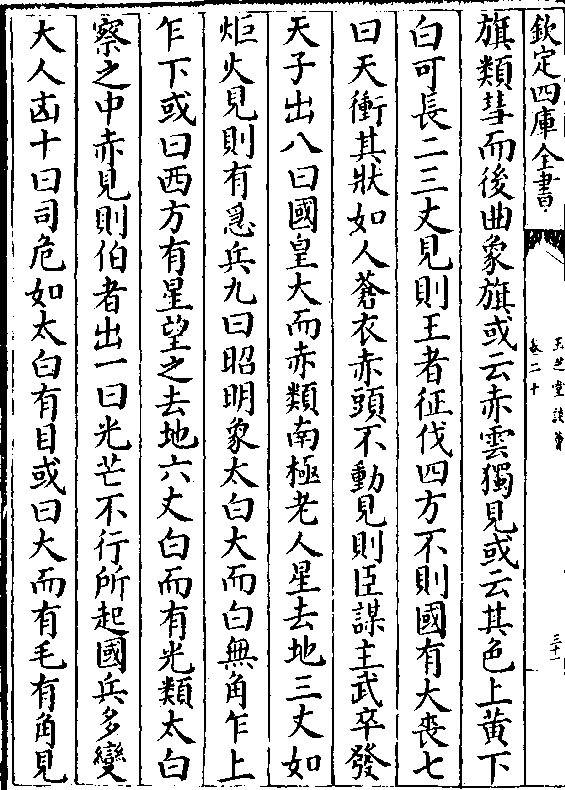 欽定四庫全書
玉芝堂談薈
卷二十
三十一
旗類彗而後曲象旗或云赤雲獨見或云其色上黃下
白可長二三丈見則王者征伐四方不則國有大喪七
曰天衝其狀如人蒼衣赤頭不動見則臣謀主武卒發
天子出八曰國皇大而赤類南極老人星去地三丈如
炬火見則有急兵九曰昭明象太白大而白無角乍上
乍下或曰西方有星望之去地六丈白而有光類太白
察之中赤見則伯者出一曰光芒不行所起國兵多變
大人凶十曰司危如太白有目或曰大而有毛有角見